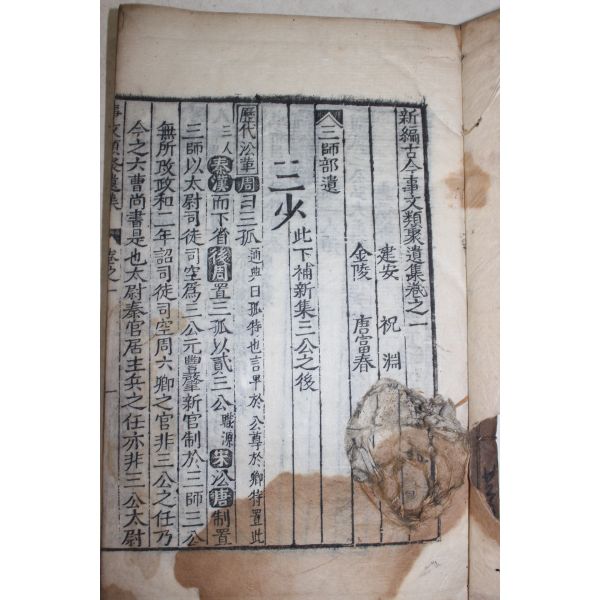 新編古今事文類聚遺集卷之一
建安 祝 淵
金陵 唐富春
三師部遺
三少 此下補新集三公之後
歷代沿革 周曰三孤 通典曰孤特也言卑於公尊於卿特置此
三人 秦漢而下省 後周置三孤以貳三公 職源 宋沿唐制置
三師以太尉司徒司空為三公元豐肇新官制於三師三公
無所改政和二年詔司徒司空周六卿之官非三公之任乃
今之六曹尚書是也太尉秦官居主兵之任亦非三公太尉
事文類聚遺集 卷之一